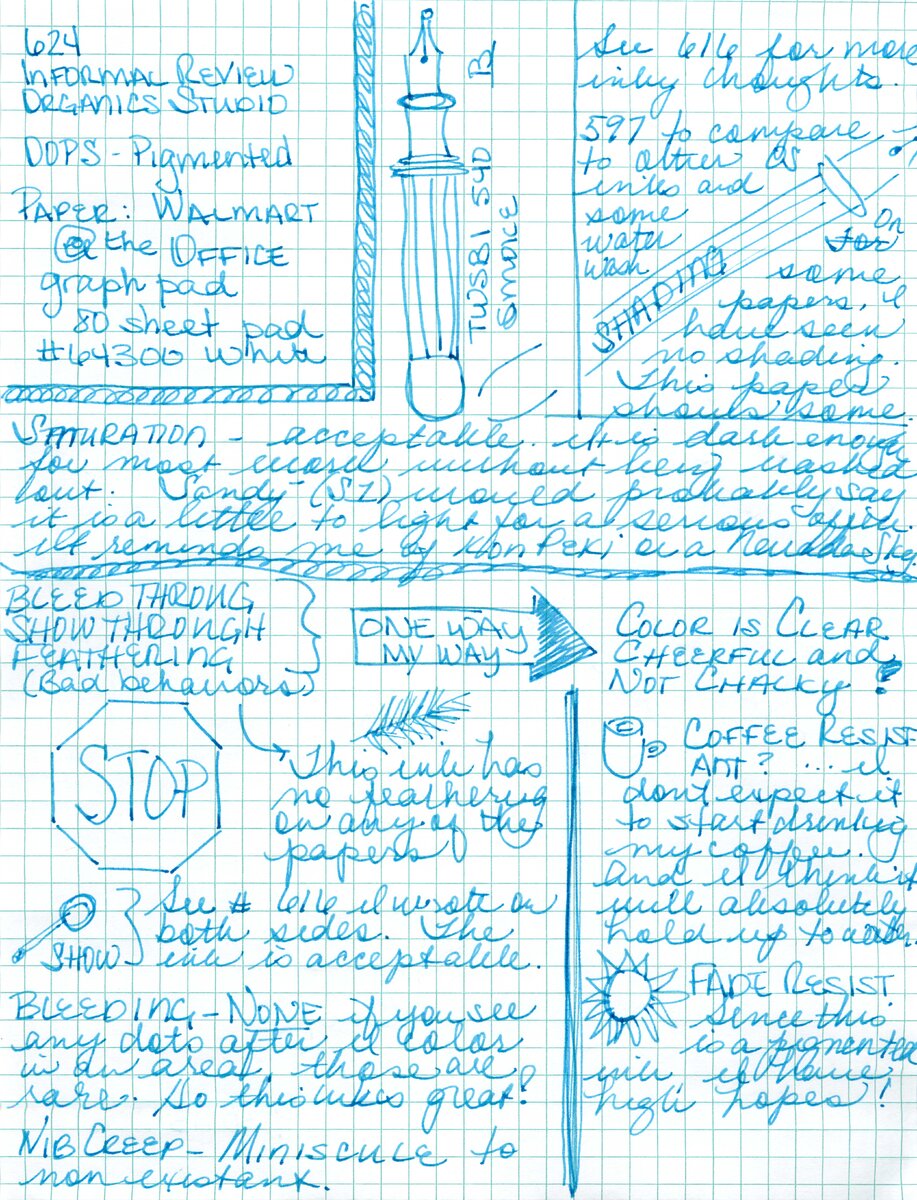 624
INFORMAL REVIEW
ORGANICS STUDIO
OOPS - Pigmented
PAPER: WALMART
@ the OFFICE
graph pad
80 sheet pad
#64300 White
B
TWSBI 540
SMOKE
See 616 for more
inky thoughts.
597 to compare
to other OS
inks and
some
water
wash
SHADING
On
for
some
papers, I
have seen
no shading.
This paper
shows some.
SATURATION - acceptable. it is dark enough
for most work without being washed
out. Sandy (S1) would probably say
it is a little to light for a serious office.
it reminds me of Kon Peki or a
BLEED THROUG
SHOW THROUGH
FEATHERING
(Bad behaviors)
ONE WAY
MY WAY
COLOR IS CLEAR
CHEERFUL and
NOT CHALKY!
STOP
This ink has
no feathering
on any of the
papers
COFFEE RESIST
ANT? ... I
dont expect it
to start drinking
my coffee.
And I think it
will absolutely
hold up to water.
SHOW
See # 616 I wrote on
both sides. The
ink is acceptable.
FADE RESIST
Since this
is a pigmented
ink I have
high hopes!
BLEEDING - NONE if you see
any dots after I color
in an area, those are
rare. So this inks great!
NIB CREEP - MINISCULE to
non existant.